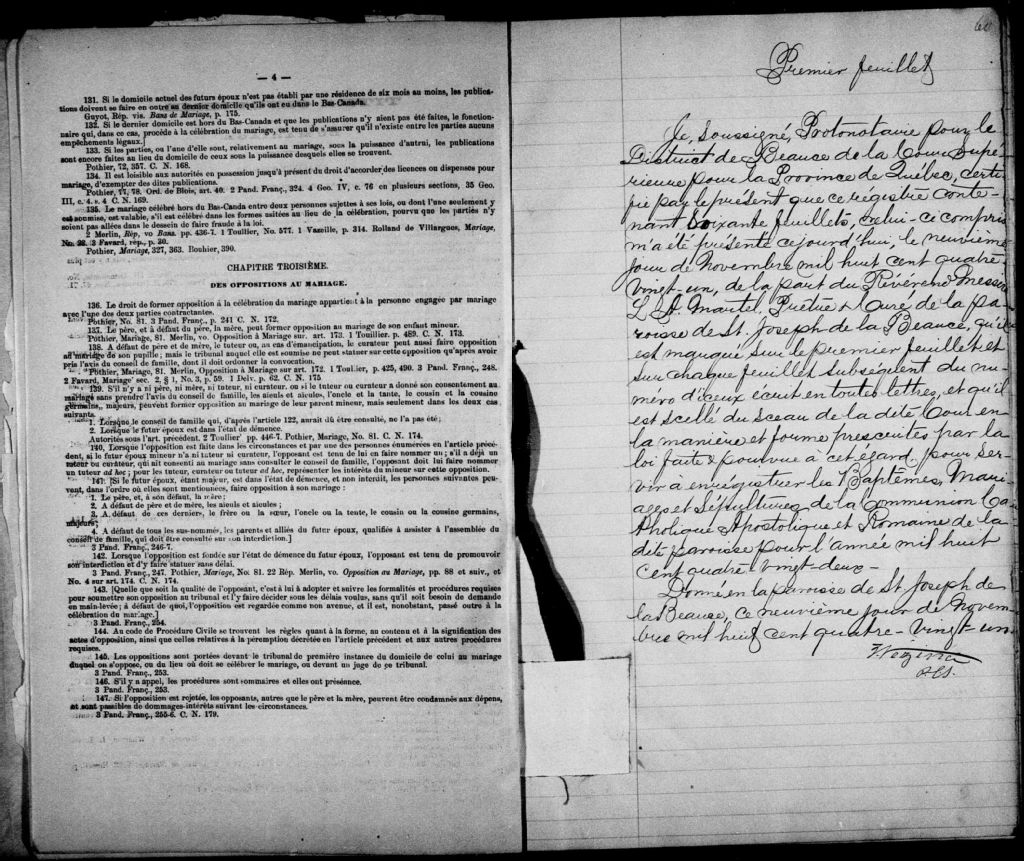 — 4 —
131. Si le domicile actuel des futurs époux n'est pas établi par une résidence de six mois au moins, les publica-
tions doivent se faire en outre au dernier domicile qu'ils ont eu dans le Bas-Canada.
Guyot, Rép. vis. Bans de Mariage, p. 175.
132. Si le dernier domicile est hors du Bas-Canada et que les publications n'y aient pas été faites, le fonction-
naire qui, dans ce cas, procède à la célébration du mariage, est tenu de s'assurer qu'il n'existe entre les parties aucuns
empêchements légaux.]
133. Si les parties, ou l'une d'elles, sont, relativement au mariage, sous la puissance d'autrui, les publications
sont encore faites au lieu du domicile de ceux sous la puissance desquels elles se trouvent.
Pothier, 72, 357. C. N. 168.
134. Il est loisible aux autorités en possession jusqu'à présent du droit d'accorder des licences ou dispenses pour
mariage, d'exempter des dites publications.
Pothier, 77, 78. Ord. de Blois, art. 40. 2 Pand. Franç., 324. 4 Geo. IV, c. 76 en plusieurs sections, 35 Geo.
III, c. 4. v. 4 C. N. 169.
135. Le mariage célébré hors du Bas-Canda entre deux personnes sujettes à ses lois, ou dont l'une seulement y
est soumise, est valable, s'il est célébré dans les formes usitées au lieu de la célébration, pourvu que les parties n'y
soient pas allées dans le dessein de faire fraude à la loi.
2 Merlin, Rép, vo Bans. pp. 436-7. 1 Toullier, No. 577. 1 Vazeille, p. 314. Rolland de Villargues, Mariage,
No. 28. 3 Favard, rép., p. 30.
Pothier, Mariage, 327, 363. Bouhier, 390.
CHAPITRE TROISIÈME.
DES OPPOSITIONS AU MARIAGE.
136. Le droit de former opposition à la célébration du mariage appartient à la personne engagée par mariage
avec l'une des deux parties contractantes.
Pothier, No. 81. 3 Pand. Franç., p. 241 C. N. 172.
137. Le père, et à défaut du père, la mère, peut former opposition au mariage de son enfant mineur.
Pothier, Mariage, 81. Merlin, vo. Opposition à Mariage sur. art. 173. 1 Touillier. p. 489. C. N. 173.
138. A défaut de père et de mère, le tuteur ou, au cas d'émancipation, le curateur peut aussi faire opposition
au mariage de son pupille; mais le tribunal auquel elle est soumise ne peut statuer sur cette opposition qu'après avoir
pris l'avis du conseil de famille, dont il doit ordonner la convocation.
Pothier, Mariage, 81. Merlin, Opposition à Mariage sur art. 172. 1 Toullier, p. 425, 490. 3 Pand. Franç., 248.
2 Favard, Mariage sec. 2, § 1, No. 3, p. 59. 1 Delv. p. 62. C. N. 175
139. S'il n'y a ni père, ni mère, ni tuteur, ni curateur, ou si le tuteur ou curateur a donné son consentement au
mariage sans prendre l'avis du conseil de famille, les aïeuls et aïeules, l'oncle et la tante, le cousin et la cousine
germains, majeurs, peuvent former opposition au mariage de leur parent mineur, mais seulement dans les deux cas
suivants.
1. Lorsque le conseil de famille qui, d'après l'article 122, aurait dû être consulté, ne l'a pas été;
2. Lorsque le futur époux est dans l'état de démence.
Autorités sous l'art. précédent. 2 Toullier pp. 446-7. Pothier, Mariage, No. 81. C. N. 174.
140. Lorsque l'opposition est faite dans une des circonstances énumérées en l'article précé-
dent, si le futur époux mineur n'a ni tuteur ni curateur, l'opposant est tenu de lui en faire nommer un; s'il a déjà un
tuteur ou curateur, qui ait consenti au mariage sans consulter le conseil de famille, l'opposant doit lui faire nommer
un tuteur ad hoc; pour les tuteur, curateur ou tuteur ad hoc, représenter les intérêts du mineur sur cette opposition.
141. [Si le futur époux, étant majeur, est dans l'état de démence, et non interdit, les personnes suivantes peu-
vent, dans l'ordre où elles sont mentionnées, faire opposition à son mariage:
1. Le père, et, à son défaut, la mère;
2. A défaut de père et de mère, les aïeuls et aïeules;
3. A défaut de ces derniers, le frère ou la sœur, l'oncle ou la tente, le cousin ou la cousine germains,
majeurs;
4. A défaut de tous les sus-nommés, les parents et alliés du futur époux, qualifiés à assister à l'assemblée du
conseil de famille, qui doit être consulté sur son interdiction.]
3 Pand. Franç., 246-7.
142. Lorsque l'opposition est fondée sur l'état de démence du futur époux, l'opposant est tenu de promouvoir
son interdiction et d'y faire statuer sans délai.
3 Pand. Franç., 247. Pothier, Mariage, No. 81. 22 Rép. Merlin, vo. Opposition au Mariage, pp. 88 et suiv., et
No. 4 sur art. 174. C. N. 174.
143. [Quelle que soit la qualité de l'opposant, c'est à lui à adopter et suivre les formalités et procédure requises
pour soumettre son opposition au tribunal et l'y faire decider sous les délais voulus, sans qu'il soit besoin de demande
en main-levée; à défaut de quoi, l'opposition est regardée comme non avenue, et il est, nonobstant, passé outre à la
célébration du mariage.]
3 Pand. Franç., 254.
144. Au code de Procédure Civile se trouvent les règles quant à la forme, au contenu et à la signification des
actes d'opposition, ainsi que celles relatives à la péremption décrétée en l'article précédent et aux autres procédures
requises.
145. Les oppositions sont portées devant le tribunal de première instance du domicile de celui au mariage
duquel on s'oppose, ou du lieu où doit se célébrer le mariage, ou devant un juge de ce tribunal.
3 Pand. Franç., 253.
146. S'il y a appel, les procédures sont sommaires et elles ont préséance.
3 Pand. Franç., 253.
147. Si l'opposition est rejetée, les opposants, autres que le père et la mère, peuvent être condamnés aux dépens,
et sont passibles de dommages-intérêts suivant les circonstances.
3 Pand. Franç., 255-6. C. N. 179.
Premier feuillet
Je, soussigné, Protonotaire pour le
District de Beauce de la Cour Supé-
rieure pour la Province de Québec, certi-
fie par le présent que ce régistre conte-
nant Soixante feuillets, celui-ci compris
m'a été présenté cejourd'hui, le neuvième
jour de Novembre mil huit cent quatre
vingt-un, de la part du Révérend Messire
L. A. Martel, Prêtre & Curé de la pa-
roisse de St. Joseph de la Beauce, qu'il
est marqué sur le premier feuillet et
sur chaque feuillet subséquent du nu-
méro d'iceux écrit en toutes lettres, et qu'il
est scellé du sceau de la dite Cour en
la manière et forme prescrites par la
loi faite & pourvue à cet égard, pour ser-
vir à enregistrer les Baptêmes, Mari-
ages et Sépultures de la Communion Ca-
tholique Apostolique et Romaine de la
dite paroisse pour l'année mil huit
cent quatre vingt-deux-
Donné en la paroisse de St Joseph de
la Beauce, ce neuvième jour de Novem-
bre mil huit cent quatre-vingt-un
Vezina
P.C.S.